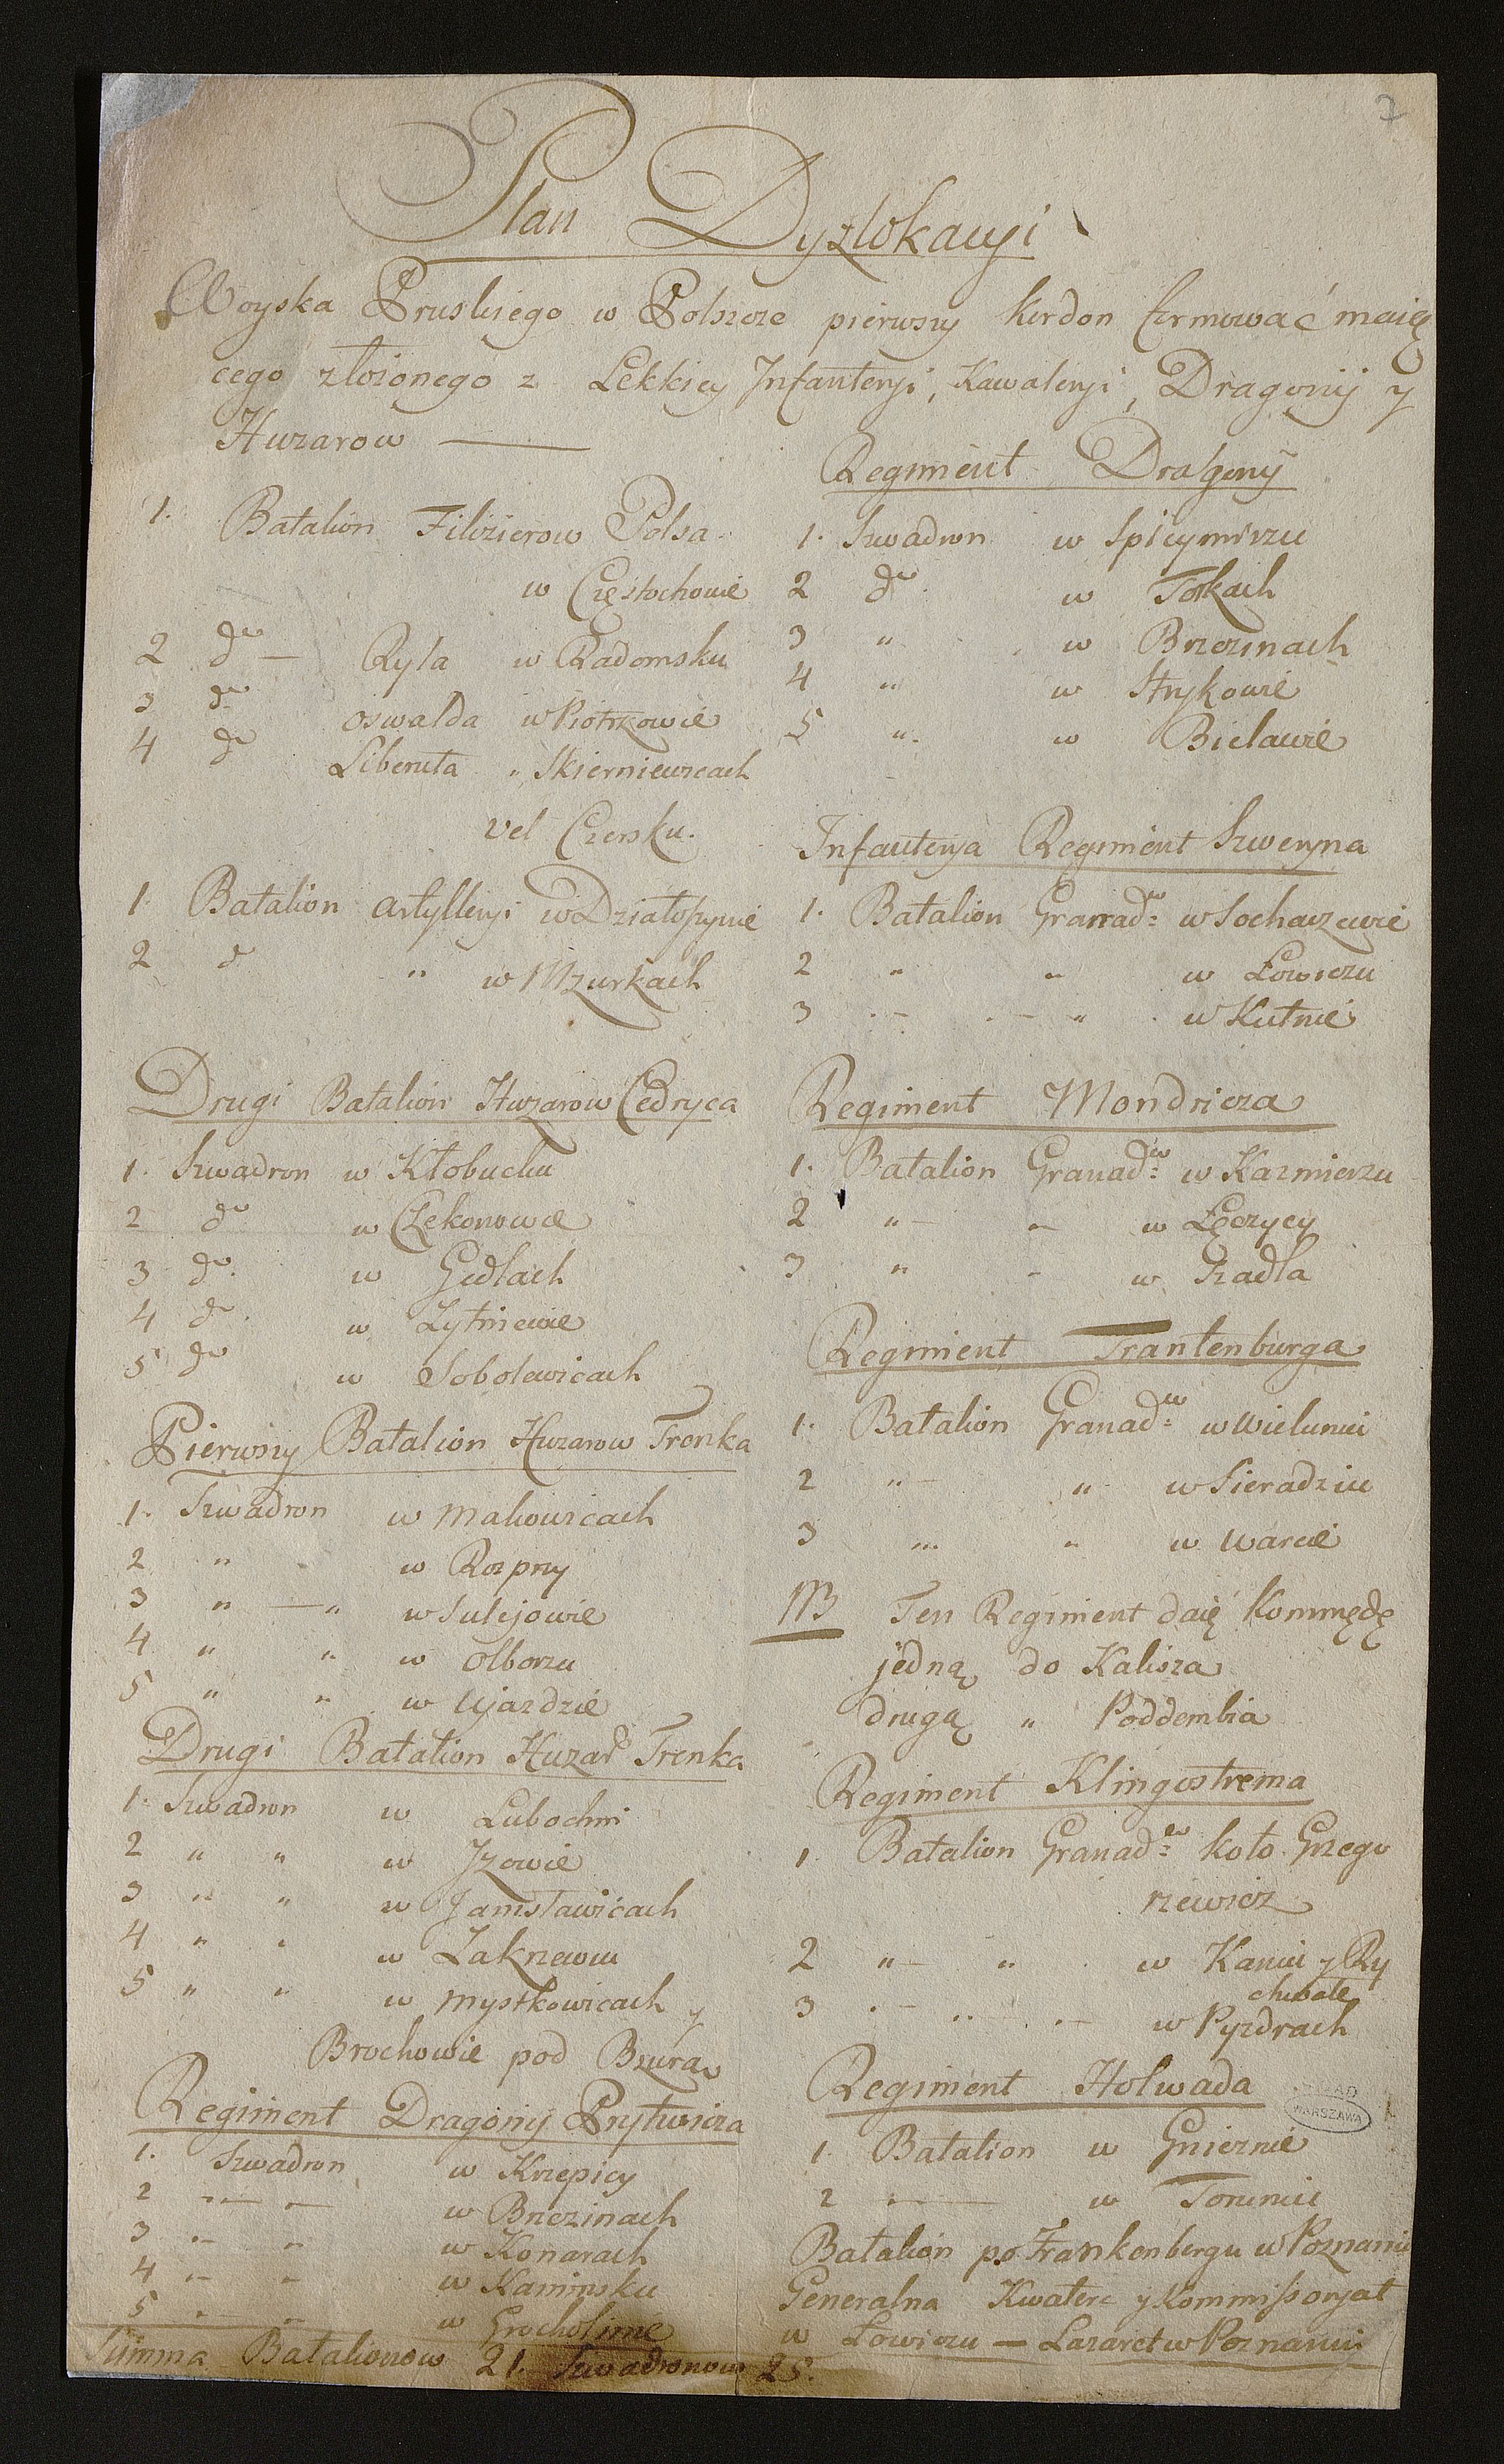 7
Plan Dyzlokacyi
Woyska Pruskiego w Polszcze pierwszy kordon formować maią
cego złożonego z Lekkiey Infanteryi, Kawaleryi, Dragonij y
Huzarow —
1. Batalion Filizierow Polsa
w Częstochowie
2 do — Ryla w Radomsku
3 do oswalda w Piotrkowie
4 do Liberuta " Skierniewicach
vel Czersku.
1. Batalion Artylleryi w Działoszynie
2 do " w Mzurkach
Drugi Batalion Huzarow Cedryca
1. Szwadron w Kłobucku
2 do w Czekonowie
3 do. w Gidlach
4 do. w Żytniewie
5 do w Sobolewicach
Pierwszy Batalion Huzarow Trenka
1. Szwadron w Makowicach
2 " w Rozprzy
3 " — " w Sulejowie
4 " " w Olborzu
5 " " w Ujazdzie
Drugi Batalion Huzar Trenka
1. Szwadron w Lubochni
2 " " w Jżowie
3 " " w Janisławicach
4 " " w Zakrzewiu
5 " " w Mystkowicach y
Brochowie pod Bzurą
Regiment Dragonij Prytwicza
1. Szwadron w Krzepicy
2 " — " — w Brzezinach
3 " — " w Konarach
4 " — " w Kaminsku
5 " — " w Grocholinie
Summa Batalionow 21. Szwadronow 25.
Regiment Dragonij
1. Szwadron w Spicymirzu
2 do. w Tokach
3 " w Brzezinach
4 " w Strykowie
5 " w Bielawie
Infanterya Regiment Szweryna
1. Batalion Granad: w Sochaczewie
2 " " w Łowiczu
3 " — " — " w Kutnie
Regiment Mondricza
1. Batalion Granad:ow w Kazmierzu
2 " — " w Łęczycy
3 " " w Szadla
Regiment Trantenburga
1. Batalion Granad:ow w Wieluniu
2 " — " w Sieradziu
3 " " w Warcie
NB Ten Regiment daię Kommędę
jedną do Kalisza
drugą " Poddembia
Regiment Klingostrema
1 Batalion Granad:ow koło Grzego
rzewicz
2 " — " w Kaniu y Ry
chwale
3 " — " — " — w Pyzdrach
Regiment Holwada
1. Batalion w Gnieznie
2 " — w Toruniu
Batalion po Frankenbergu w Poznaniu
Generalna Kwatera y Kommissoryat
w Łowiczu — Lazaret w Poznaniu
WARSZAWA